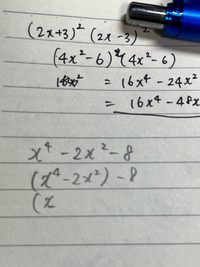 (2x+3)² (2x-3)²
(4x²-6)²(4x²-6)
= 16x⁴ - 24x²
= 16x⁴ - 48x
x⁴ - 2x² - 8
(x⁴-2x²) - 8
(x